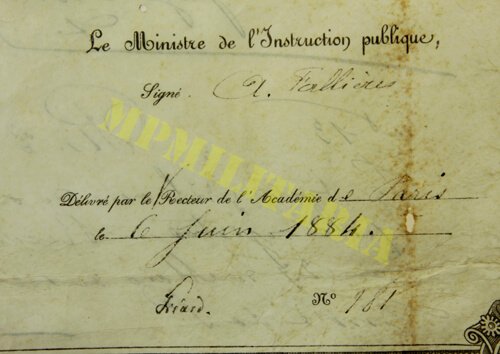 Le Ministre de l'Instruction publique,
Signé. A. Fallières
MPMILITARIA
Délivré par le Recteur de l'Académie de Paris
le 6 Juin 1884.
Nº 161